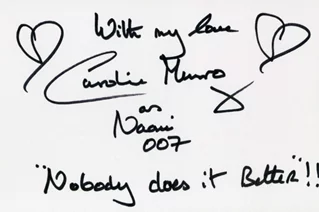 With my love
Caroline Munro X
as
Naomi
007
"Nobody does it Better"!!